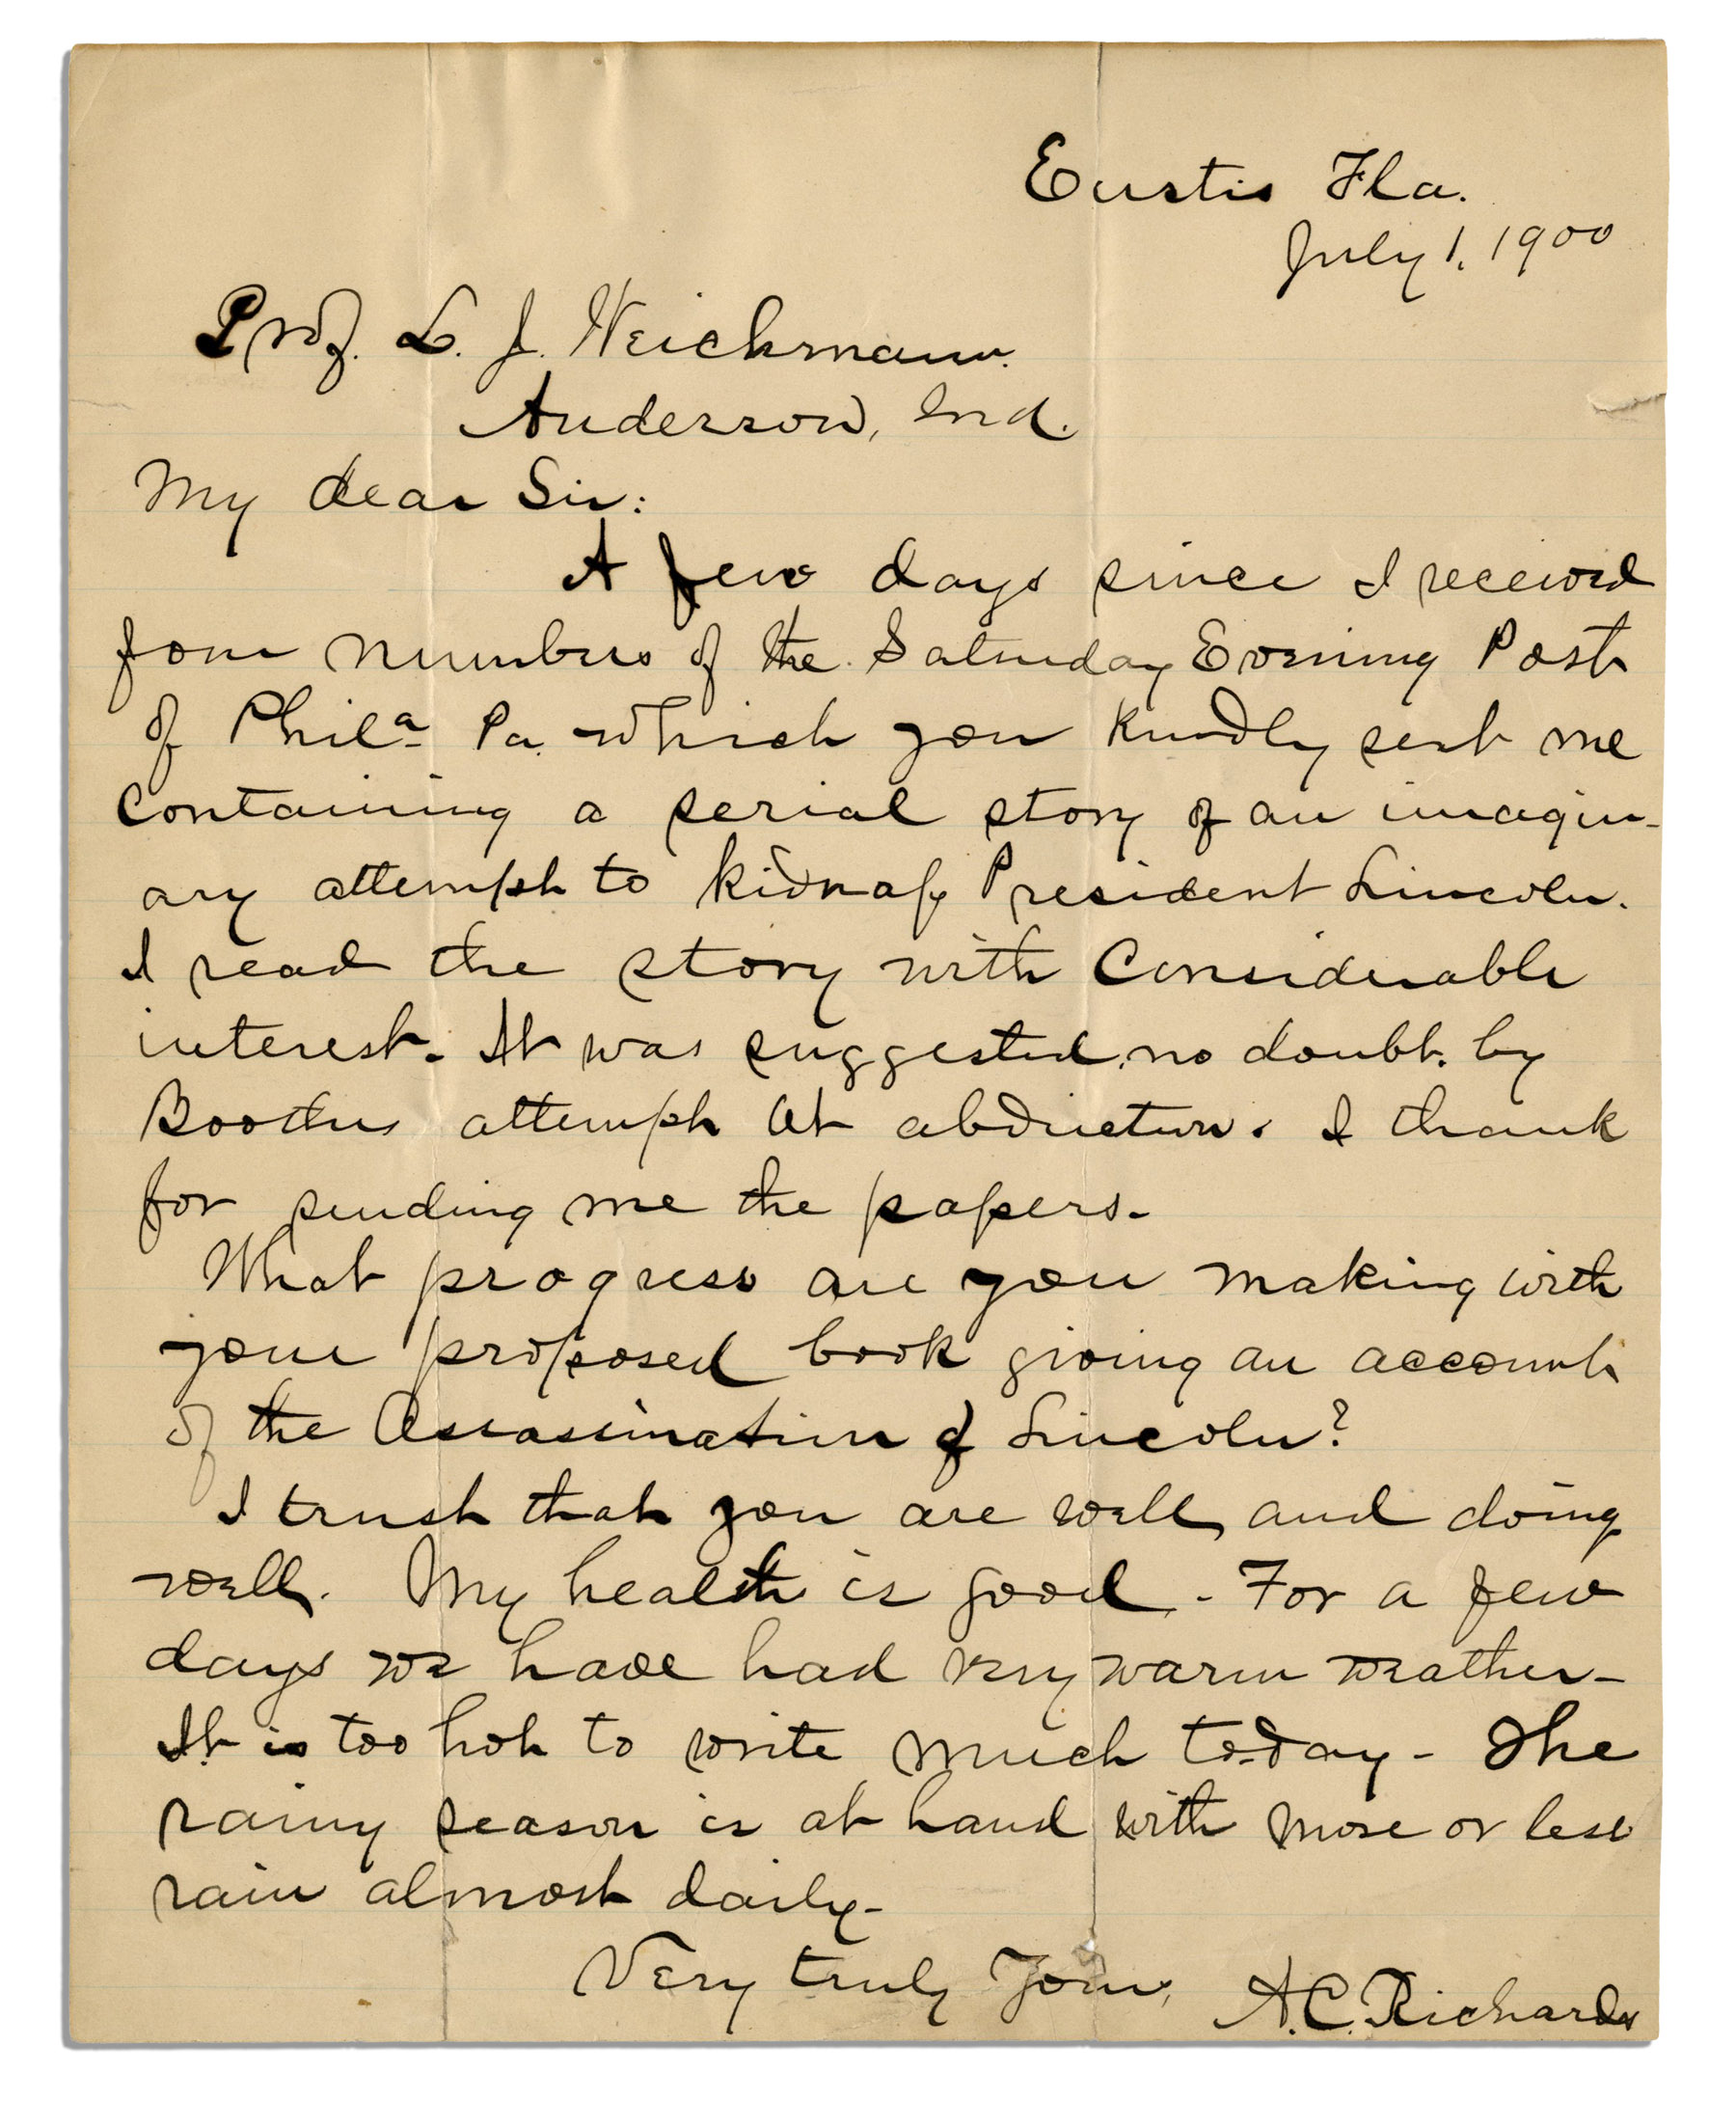 Eustis Fla.
July 1, 1900
Prof. L. J. Weichmann.
Anderson, Ind.
My dear Sir:
A few days since I received
four numbers of the Saturday Evening Post
of Phila Pa. which you kindly sent me
containing a serial story of an imagin-
ary attempt to kidnap President Lincoln.
I read the story with considerable
interest. It was suggested, no doubt, by
Booths attempt at abduction. I thank
for sending me the papers.
What progress are you making with
your proposed book giving an account
of the Assassination of Lincoln?
I trust that you are well and doing
well. My health is good. - For a few
days we have had very warm weather -
It is too hot to write much to-day - The
rainy season is at hand with more or less
rain almost daily -
Very truly Yours,
A.C. Richards